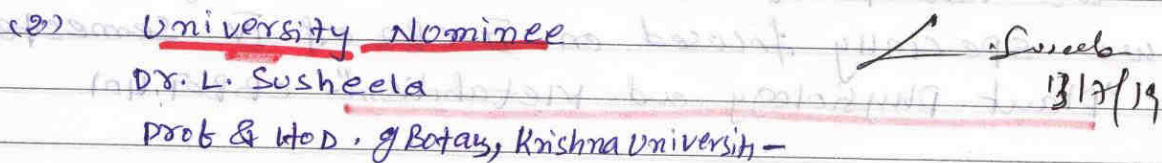 (2) University Nominee
Dr. L. Susheela
13/7/19
Prof & HOD. of Botany, Krishna University